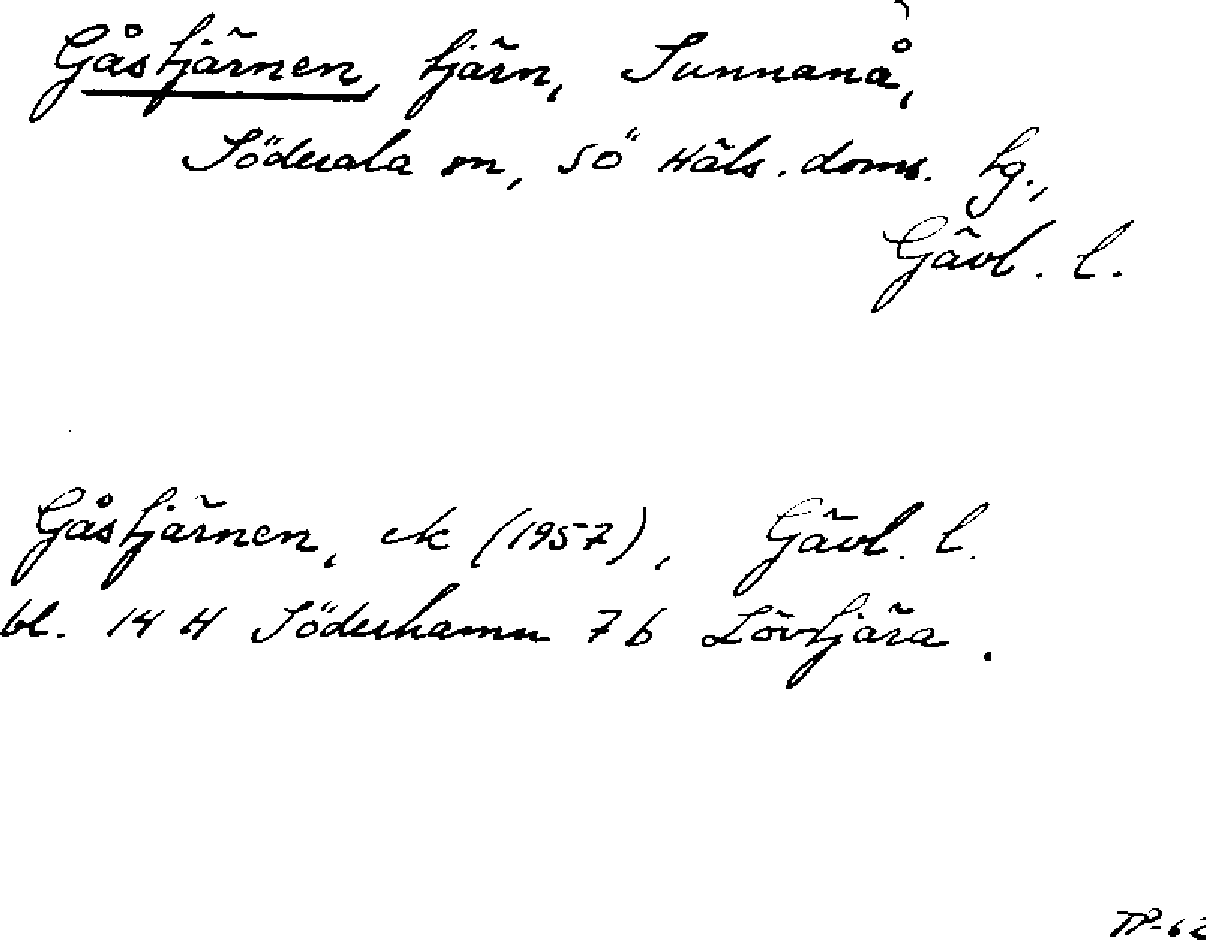 Gåstjärnen, tjärn, Sunnanå,
Söderala sn, SÖ Häls. doms. tg.,
Gävl. l.
Gåstjärnen, ek (1957), Gävl. l.
bl. 14 H Söderhamn 7 b Lövtjära.
TP-62